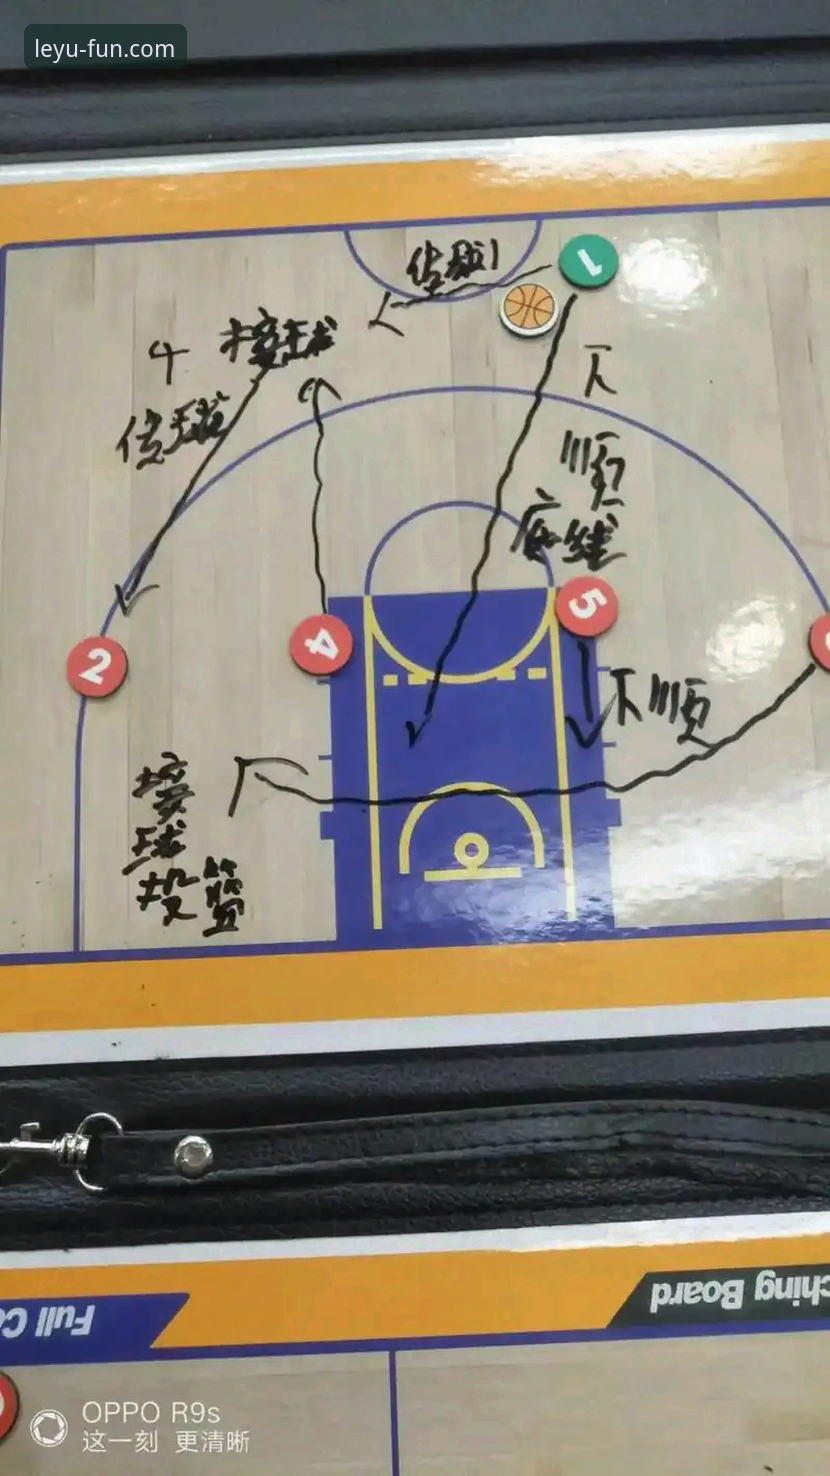 leyu-fun.com
1
传球1
4 接球
传球
下
顺
底线
5
4
2
下顺
接
球
投篮
Full C
ching Board
OPPO R9s
这一刻 更清晰